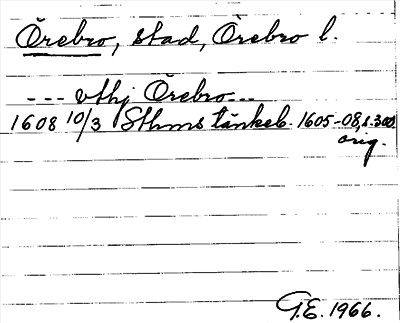 Örebro, stad, Örebro l.
--- vthj Örebro ---
1608 10/3 Sthms tänkeb. 1605-08, s. 300.
orig.
G.E. 1966.